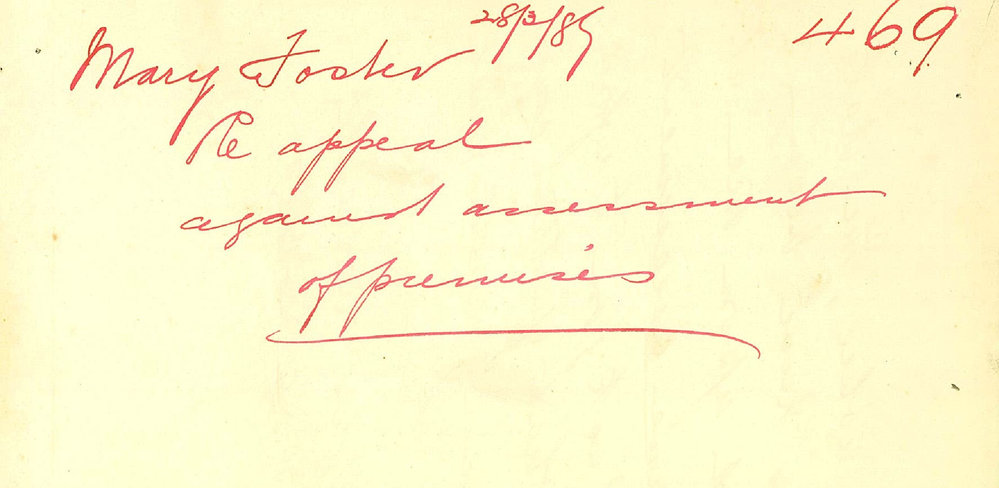 28/3/89 469
Mary Foster
Re appeal
against assessment
of premises